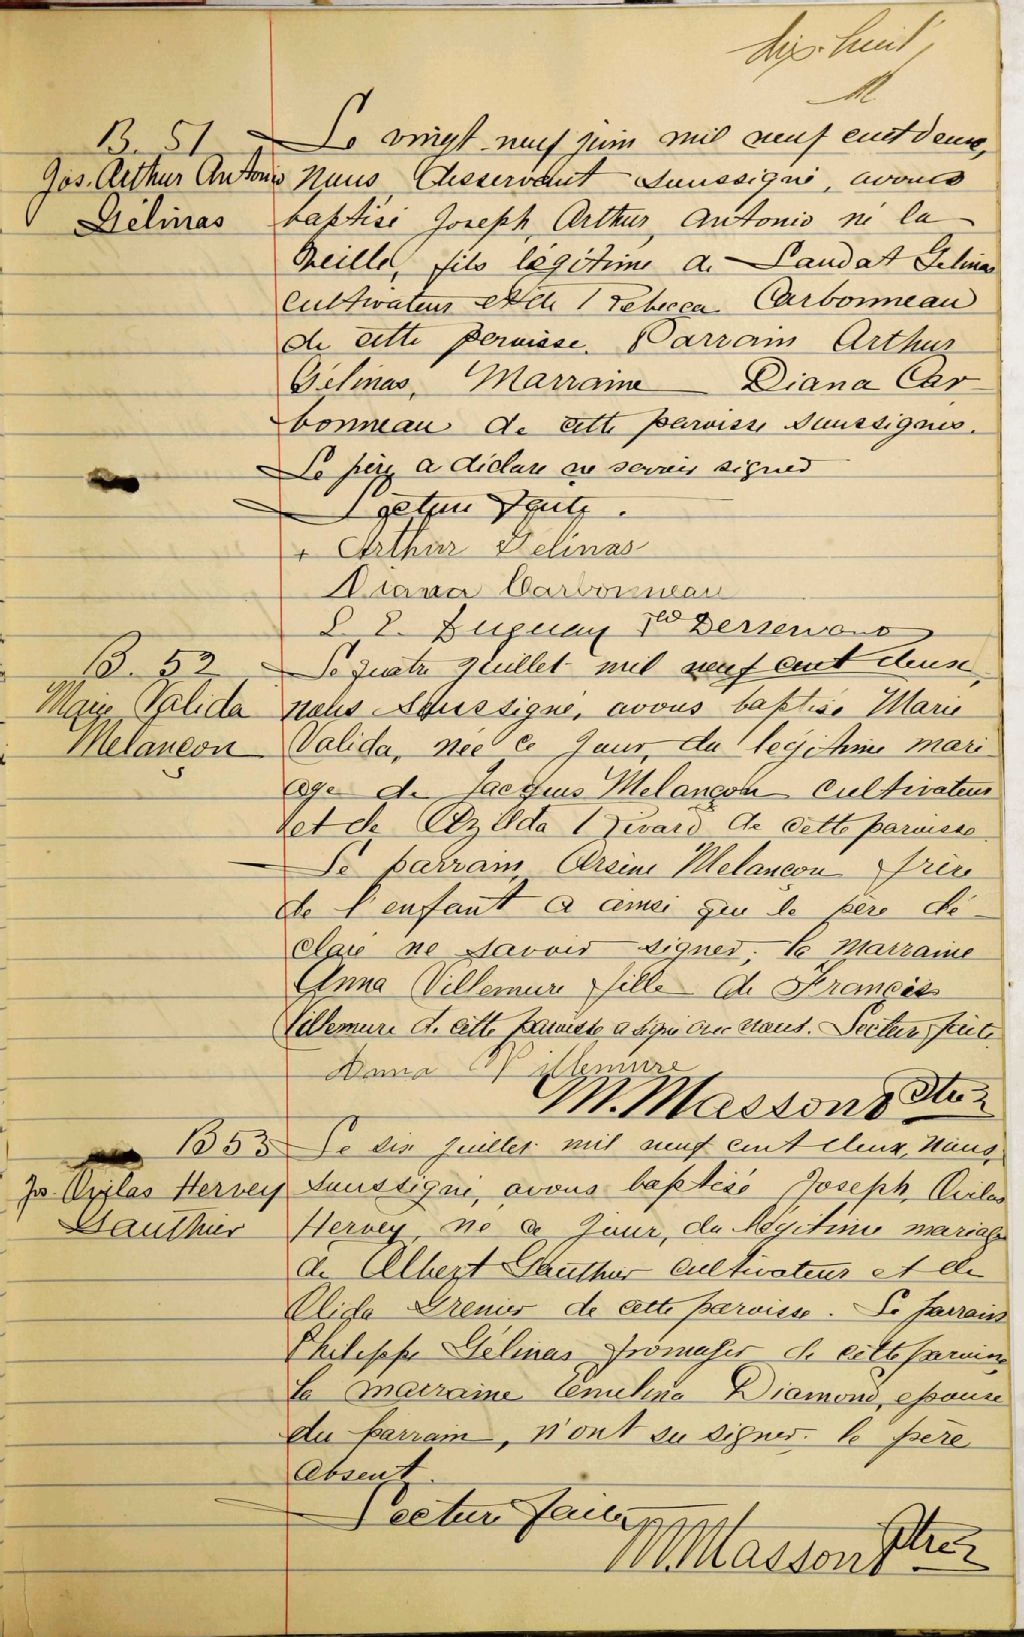 dix-huit
B. 51
Jos. Arthur Antonio
Gélinas
Le vingt-neuf juin mil neuf cent deux,
Nous, desservant soussigné, avons
baptisé Joseph, Arthur, Antonio né la
veille, fils légitime de Gélinas
cultivateur et de Rebecca Carbonneau
de cette paroisse. Parrain Arthur
Gélinas, Marraine Diana Car-
bonneau de cette paroisse soussignés.
Le père a déclaré ne savoir signer
Lecture faite.
+ Arthur Gélinas
Diana Carbonneau
L. E. Duguay Ptre Desservant
B. 52
Marie Valida
Melançon
Le quatre juillet mil neuf cent deux,
nous soussigné, avons baptisé Marie
Valida, née ce jour, du légitime mari
age de Jacques Melançon cultivateur
et de Azilda Rivard de cette paroisse
Le parrain, Arsène Melançon frère
de l'enfant a ainsi que le père dé-
claré ne savoir signer; la marraine
Anna Villemure fille de François
Villemure de cette paroisse a signé avec nous. Lecture faite
Anna Villemure
M. Masson Ptre
B 53
Jos. Ovilas Hervey
Gauthier
Le six juillet mil neuf cent deux, Nous,
soussigné, avons baptisé Joseph, Ovilas
Hervey, né ce jour, du légitime mariage
de Albert Gauthier cultivateur et de
Olida Grenier de cette paroisse. Le parrain
Philippe Gélinas fromager de cette paroisse,
la marraine Emelina Diamond, epouse
du parrain, n'ont su signer. le père
absent.
Lecture faite
M. Masson Ptre